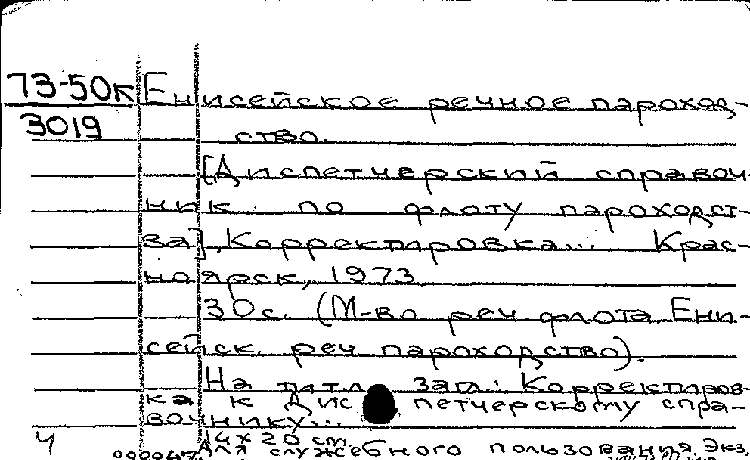 73-50к
3019
Енисейское речное пароход-
ство.
[Диспетчерский справоч-
ник по флоту пароходст-
ва]. Корректировка... Крас-
ноярск, 1973
30с. (М-во реч флота Ени-
сейск. реч пароходство).
На титл. загл.: Корректиров-
ка к Диспетчерскому спра-
вочнику...
14х20 cm.
Для служебного пользования. Экз.
4